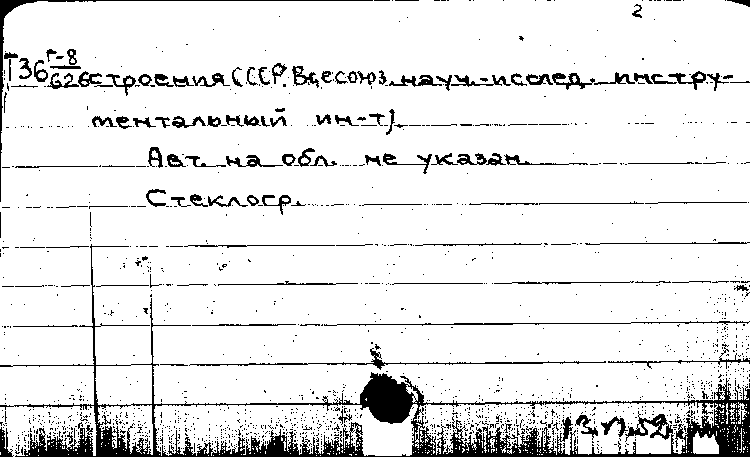 2
Т36 Г-8/626 строения СССР. Всесоюз. науч.-исслед. инстру-
ментальный ин-т).
Авт. на обл. не указан.
Стеклогр.